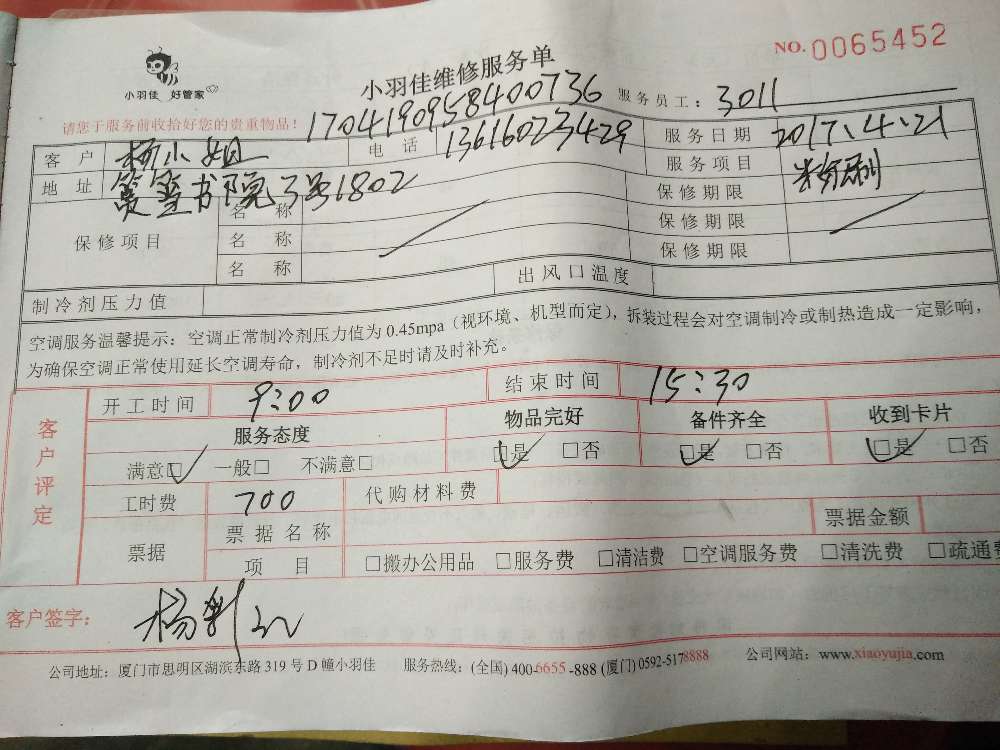 NO.0065452
小羽佳 好管家
小羽佳维修服务单
请您于服务前收拾好您的贵重物品！
1704190958400736
服务员工：3011
客户 杨小姐 电话 13616023429 服务日期 2017、4、21
地址 筼筜书院3号1802 服务项目 粉刷
保修项目 名称 保修期限
名称 保修期限
名称 保修期限
制冷剂压力值 出风口温度
空调服务温馨提示：空调正常制冷剂压力值为0.45mpa（视环境、机型而定），拆装过程会对空调制冷或制热造成一定影响，
为确保空调正常使用延长空调寿命，制冷剂不足时请及时补充。
客户评定
开工时间 9:00 结束时间 15:30
服务态度 物品完好 备件齐全 收到卡片
满意☑ 一般□ 不满意□ ☑是 □否 ☑是 □否 ☑是 □否
工时费 700 代购材料费
票据 票据名称 票据金额
项目 □搬办公用品 □服务费 □清洁费 □空调服务费 □清洗费 □疏通费
客户签字： 杨
公司地址：厦门市思明区湖滨东路319号D幢小羽佳 服务热线：(全国)400-6655-888 (厦门)0592-5178888 公司网站：www.xiaoyujia.com